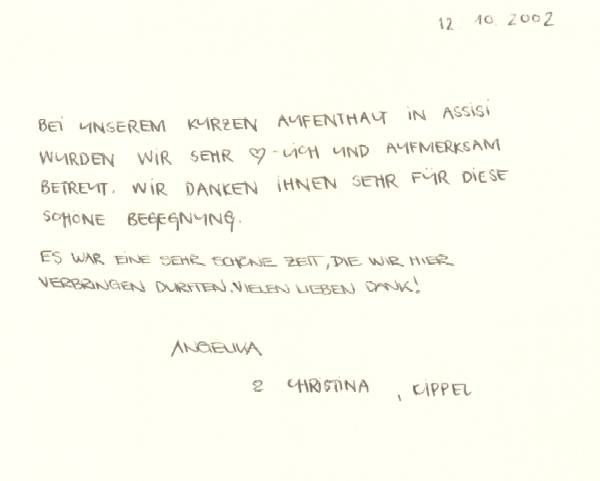 12 10. 2002
BEI UNSEREM KURZEN AUFENTHALT IN ASSISI
WURDEN WIR SEHR ♡-LICH UND AUFMERKSAM
BETREUT. WIR DANKEN IHNEN SEHR FÜR DIESE
SCHÖNE BEGEGNUNG.
ES WAR EINE SEHR SCHÖNE ZEIT, DIE WIR HIER
VERBRINGEN DURFTEN. VIELEN LIEBEN DANK!
ANGELIKA
& CHRISTINA, KIPPEL